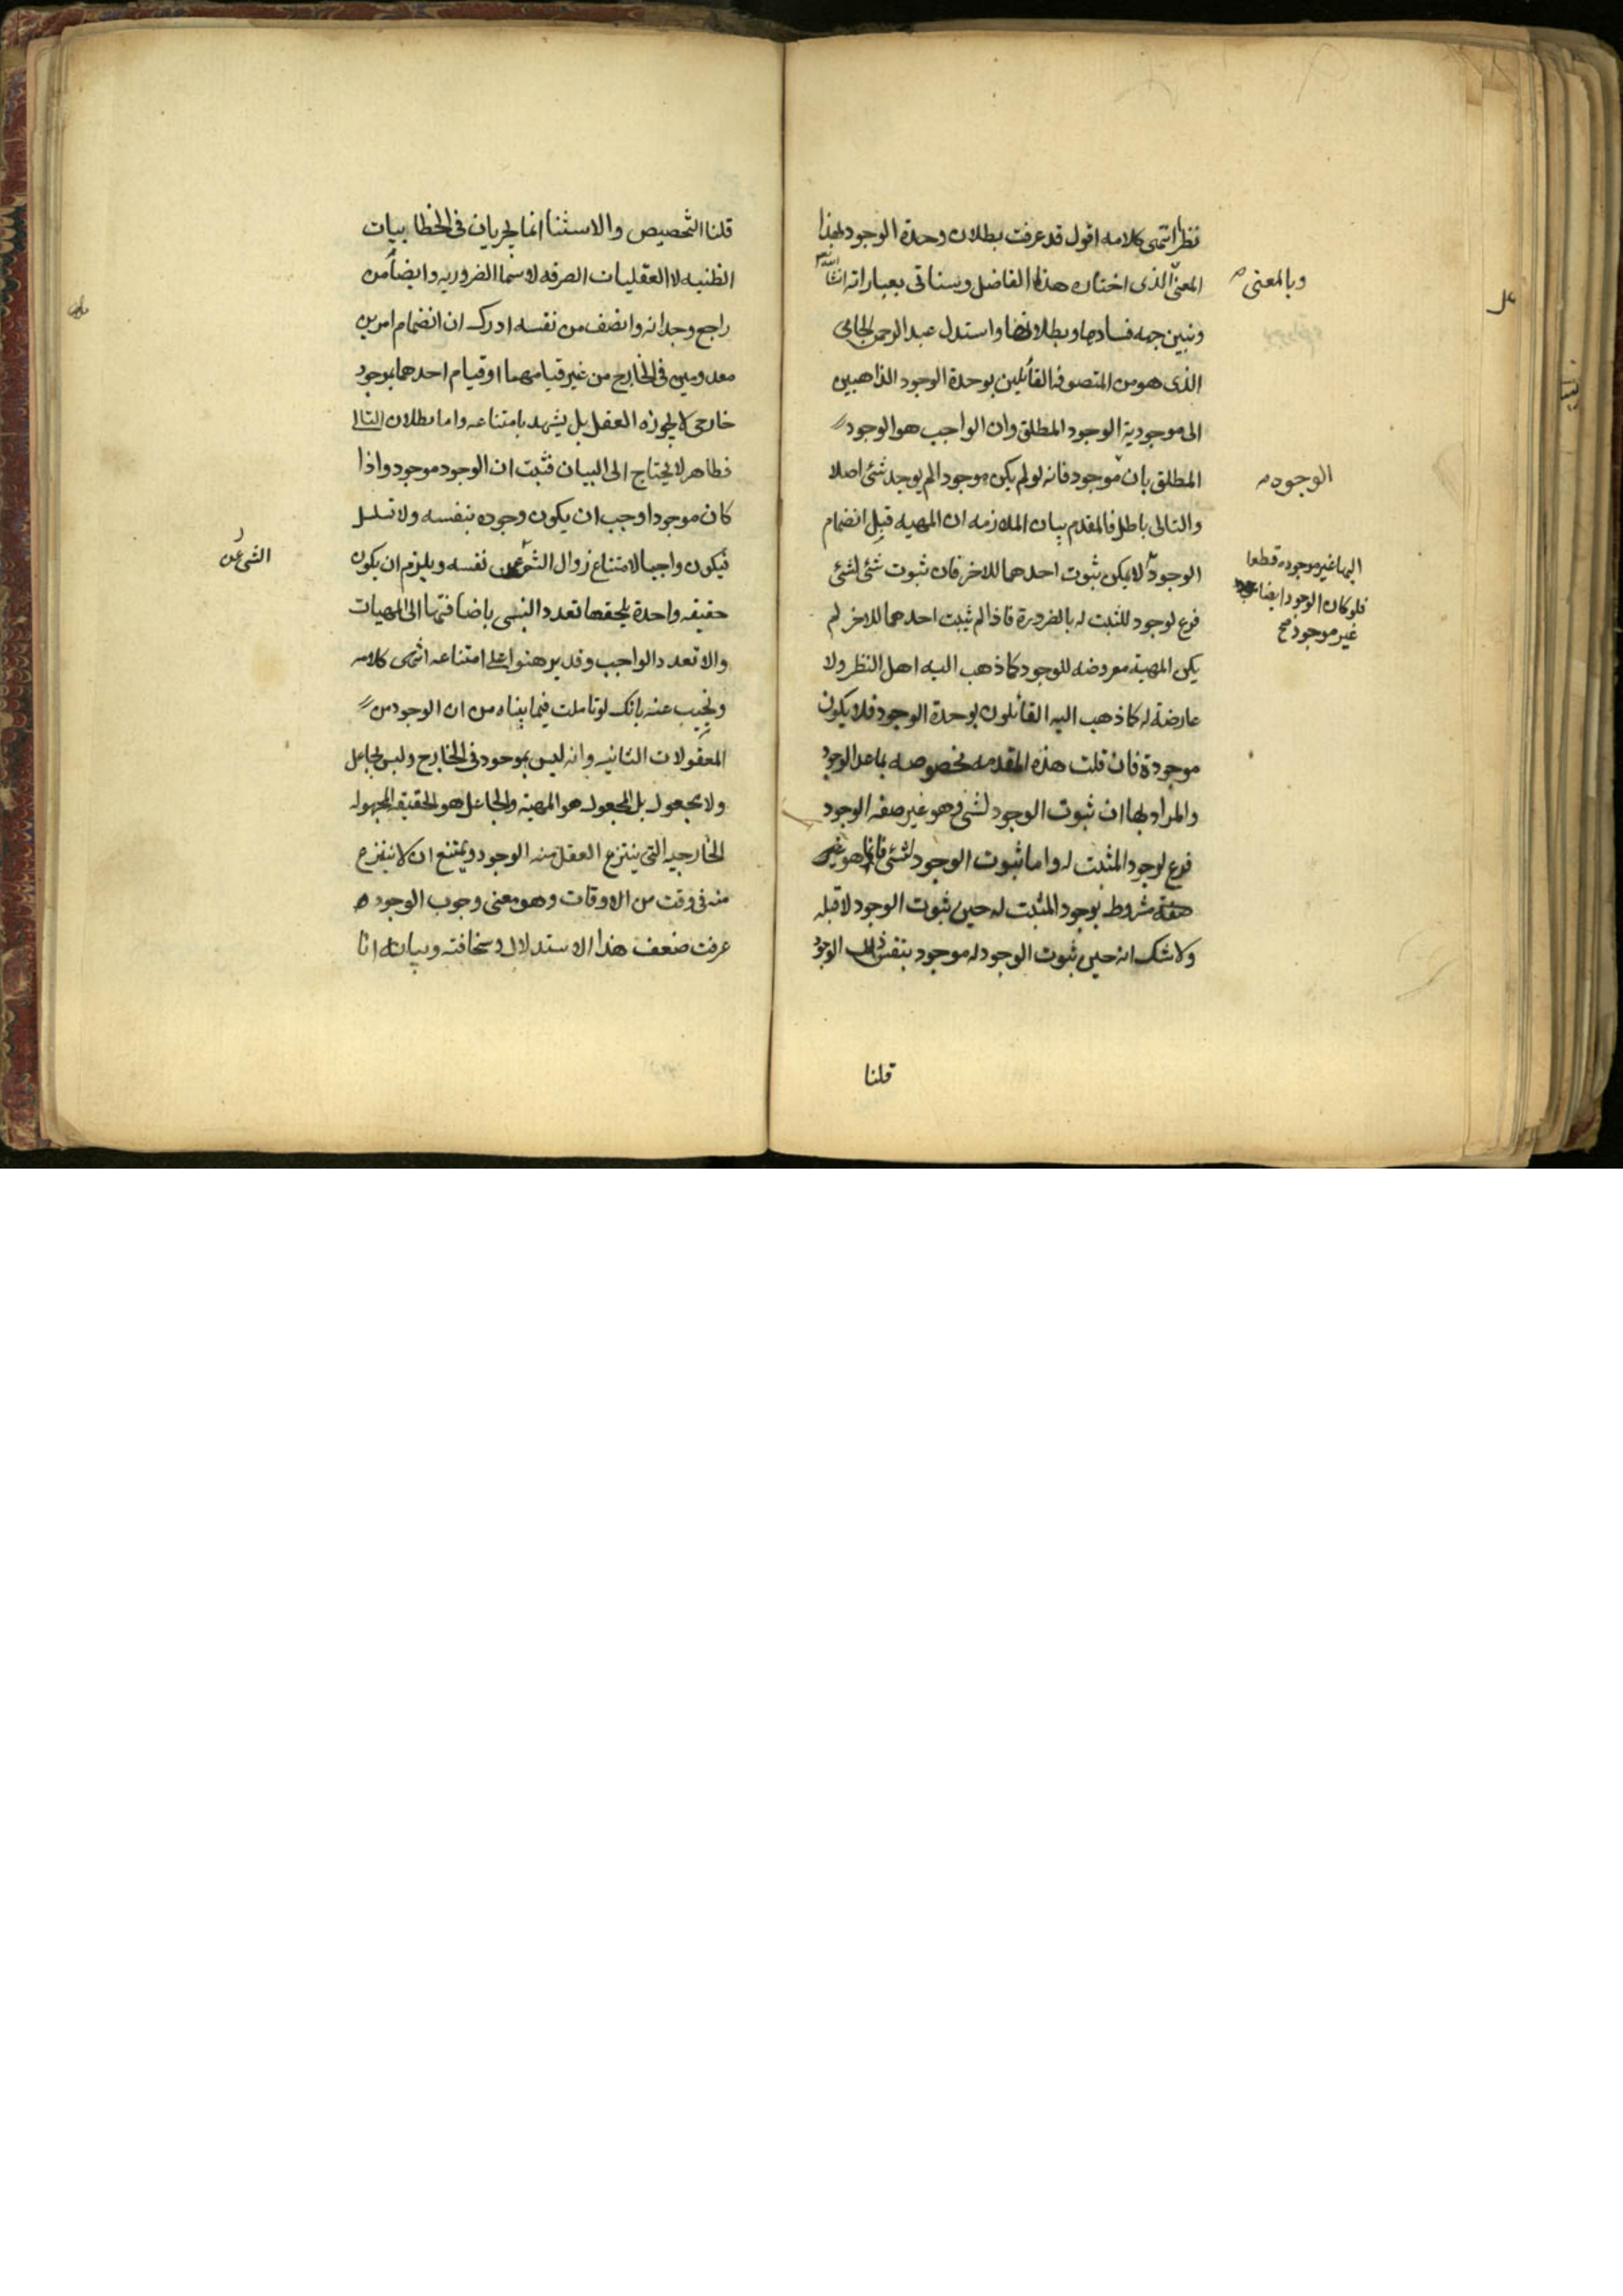 نظرا انتهى كلامه اقول قد عرفت بطلان وحدة الوجود لهذا
المعنى الذى اختاره هذا الفاضل وسناتى بعباراته انشا الله
وبالمعنى
ونبين جهه فسادها وبطلانها واستدل عبد الرحمن الجامى
الذى هو من المتصوفه القائلين بوحدة الوجود الذاهبين
الى موجودية الوجود المطلق وان الواجب هو الوجود
المطلق بان موجود فانه لو لم يكن موجودا لم يوجد شئ اصلا
الوجود
والتالى باطل فالمقدم بيان الملازمه ان المهيه قبل انضمام
الوجود لا يمكن ثبوت احدهما للاخر فان ثبوت شئ لشئ
اليها غير موجوده قطعا
فلو كان الوجود ايضا
غير موجود صح
فرع لوجود المثبت له بالضرورة فاذا لم يثبت احدهما للاخر لم
يكن المهية معروضه للوجود كما ذهب اليه اهل النظر ولا
عارضة له كما ذهب اليه القائلون بوحدة الوجود فلا يكون
موجودة فان قلت هذه المقدمه مخصوصه بما عدا الوجود
والمراد بها ان ثبوت الوجود لشئ وهو غير صفه الوجود
فرع لوجود المثبت له واما ثبوت الوجود لشئ فانما هو غير
صفة مشروط بوجود المثبت له حين ثبوت الوجود لا قبله
ولا شك انه حين ثبوت الوجود له موجود بنفس ذلك الوجود
قلنا
قلنا التخصيص والاستثنا انما يجريان فى الخطابيات
الظنيه لا العقليات الصرفه لا سيما الضروريه وايضا من
راجع وجدانه وانصف من نفسه ادرك ان انضمام امرين
معدومين فى الخارج من غير قيامهما او قيام احدهما بموجود
خارجى لا يجوزه العقل بل يشهد بامتناعه واما بطلان التالى
فظاهر لا يحتاج الى البيان فثبت ان الوجود موجود واذا
كان موجودا وجب ان يكون وجوده بنفسه ولا تسلسل
فيكون واجبا لامتناع زوال الشئ عن نفسه ويلزم ان يكون
الشئ عن
حقيقه واحدة يلحقها تعدد النسبى باضافتها الى المهيات
والا تعدد الواجب وقد برهنوا على امتناعه انتهى كلامه
ونجيب عنه بانك لو تاملت فيما بيناه من ان الوجود من
المعقولات الثانيه وانه ليس بموجود فى الخارج وليس بجاعل
ولا مجعول بل المجعول هو المهية والجاعل هو الحقيقه المجهوله
الخارجيه التى ينتزع العقل منه الوجود ويمتنع ان لا ينتزع
منه فى وقت من الاوقات وهو معنى وجوب الوجود
عرفت ضعف هذا الاستدلال وسخافته وبيانه انا